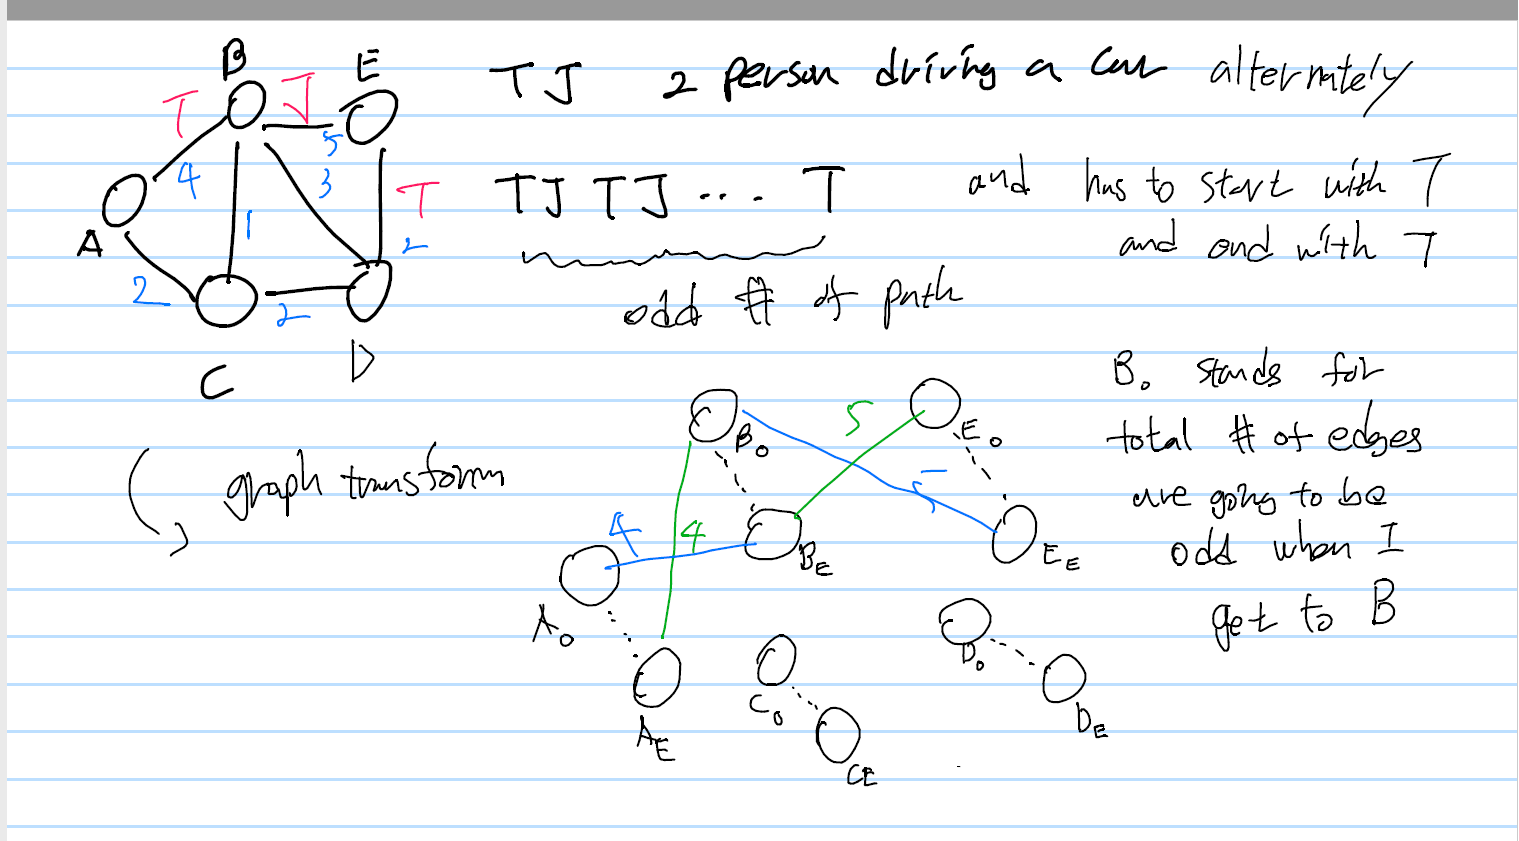 B E
T J
T J 2 person driving a car alternately
4 5
3
A
1
T
2
TJ TJ ... T
and has to start with T
and end with T
2
2
odd # of path
C D
B₀ stands for
total # of edges
are going to be
odd when I
get to B
graph transform
B₀ 5 E₀
4 4 5
B_E E_E
A₀
D₀
C₀ D_E
A_E
C_E